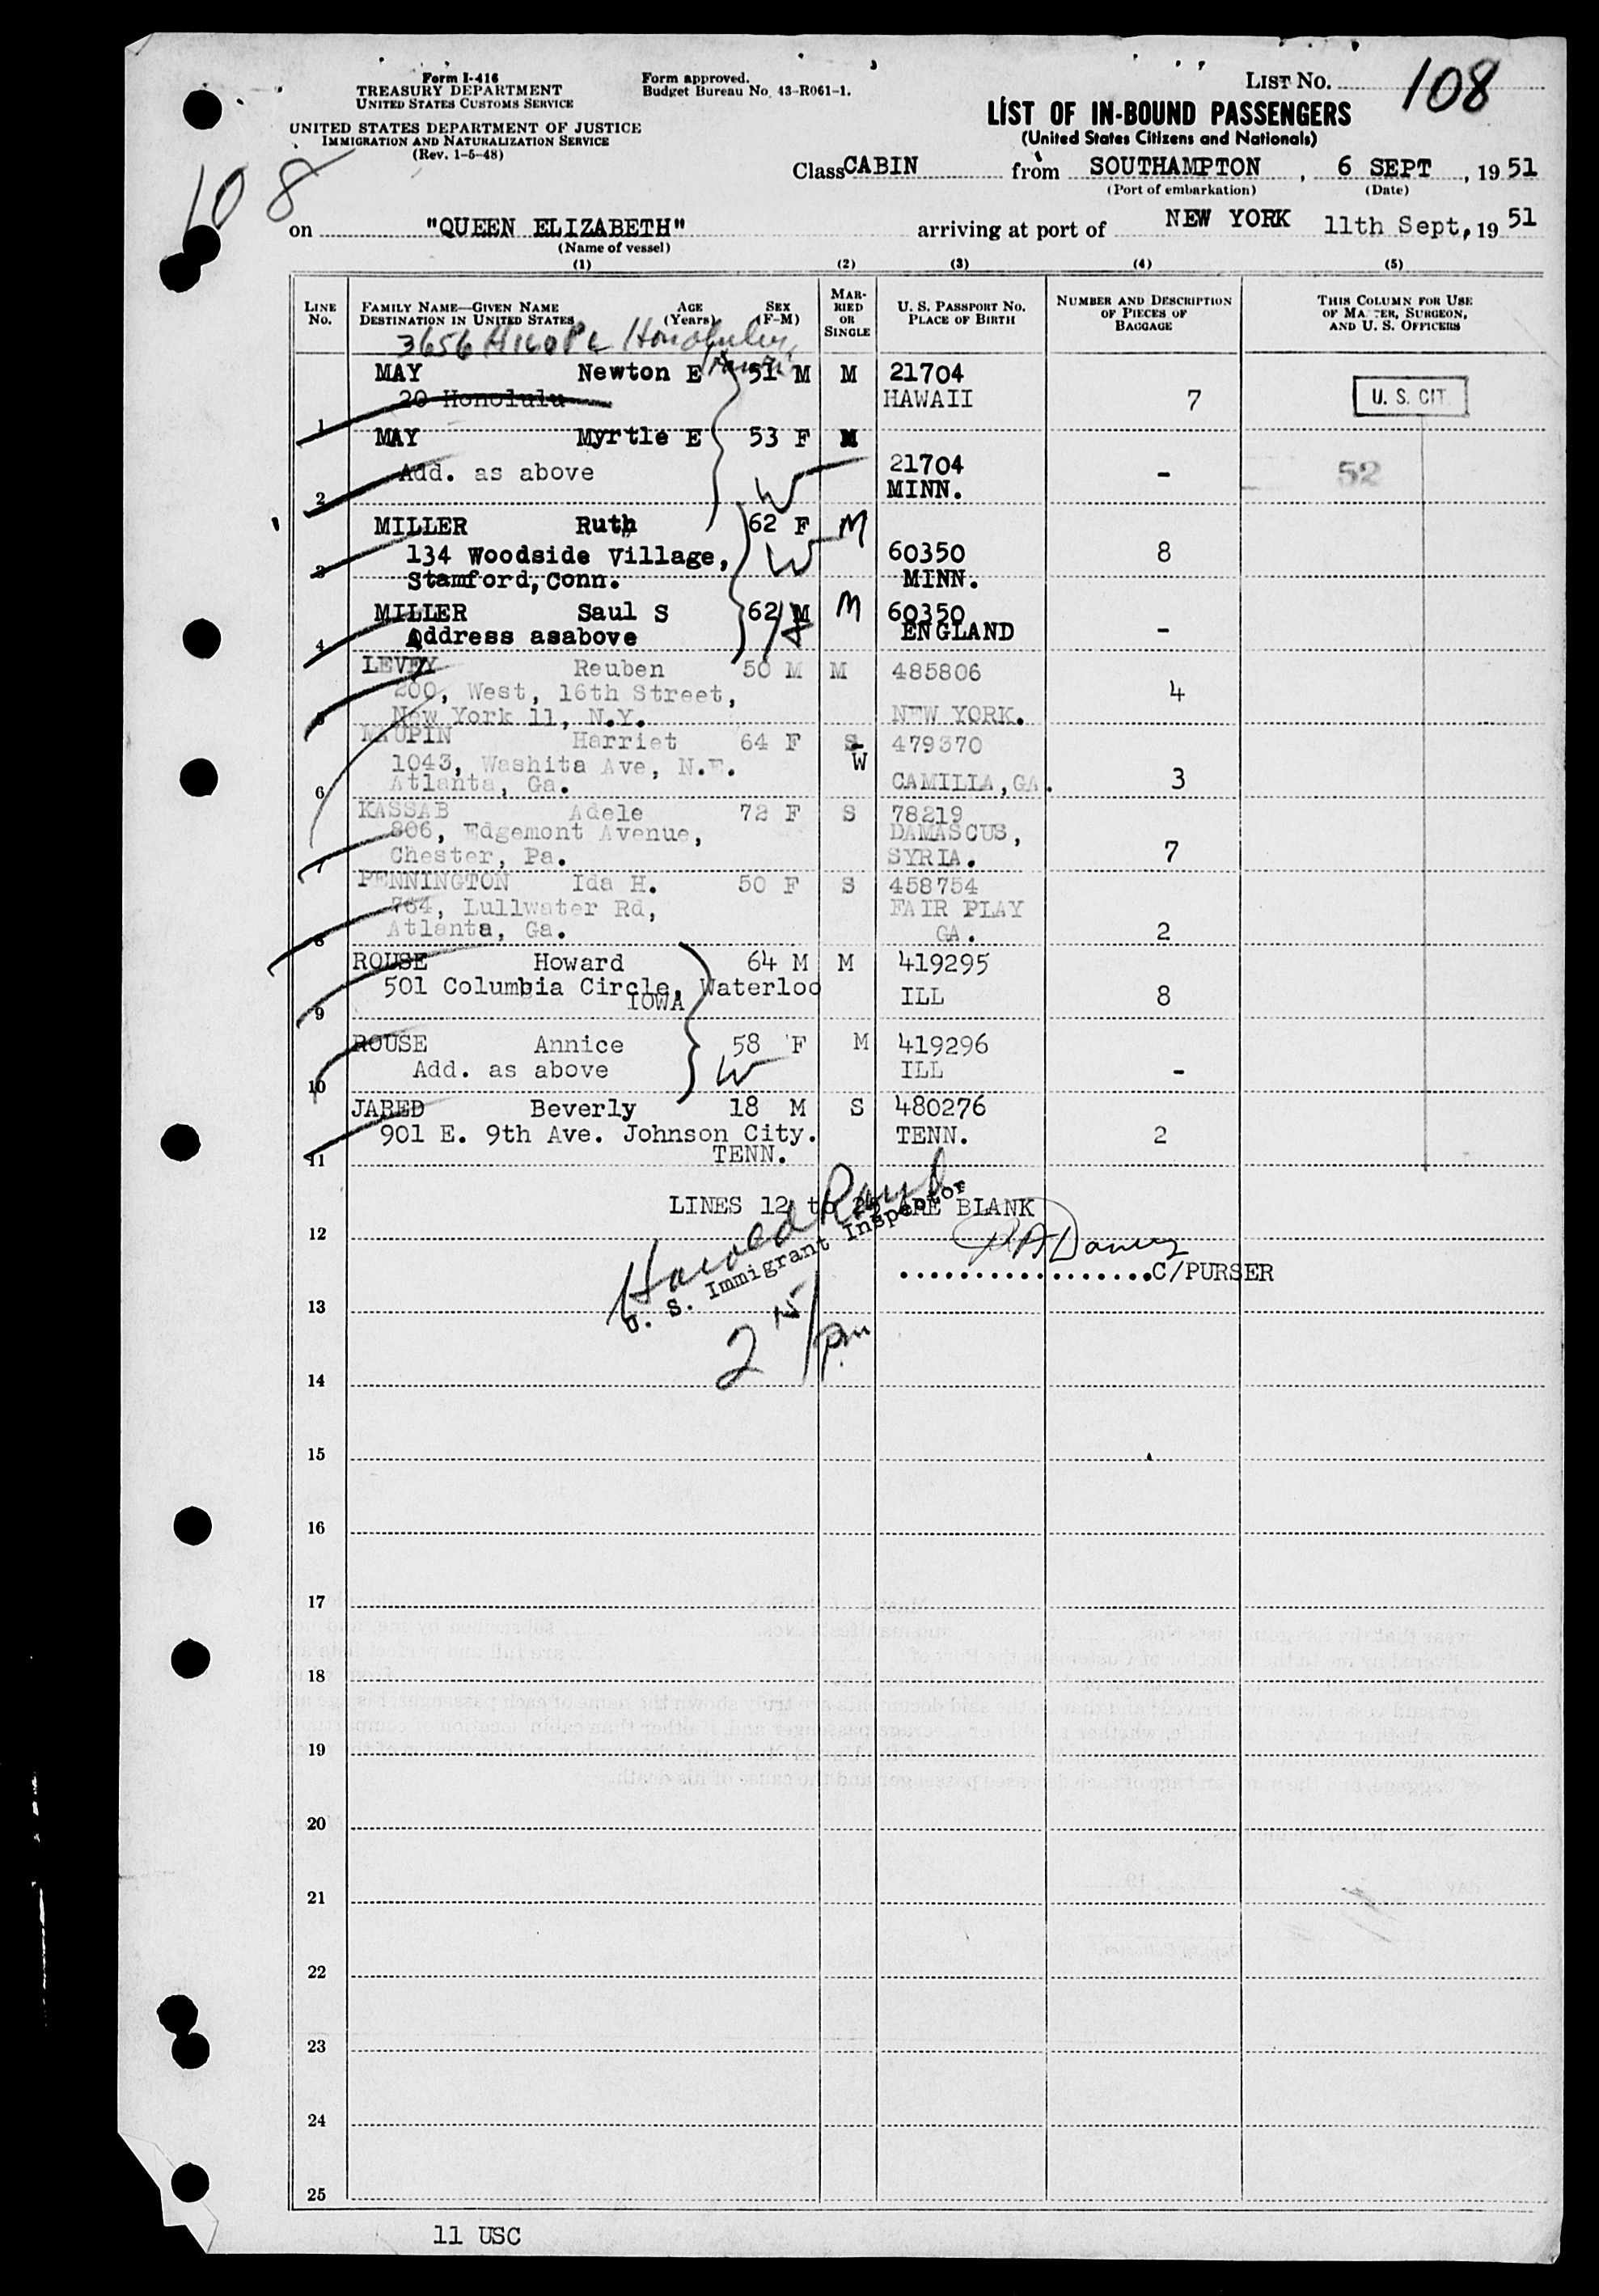 Form I-416
TREASURY DEPARTMENT
UNITED STATES CUSTOMS SERVICE
UNITED STATES DEPARTMENT OF JUSTICE
IMMIGRATION AND NATURALIZATION SERVICE
(Rev. 1-5-48)
Form approved.
Budget Bureau No. 43-R061-1.
LIST No. 108
LIST OF IN-BOUND PASSENGERS
(United States Citizens and Nationals)
108
Class CABIN from SOUTHAMPTON, 6 SEPT, 1951
(Port of embarkation) (Date)
on "QUEEN ELIZABETH" arriving at port of NEW YORK 11th Sept, 1951
(Name of vessel)
(1) (2) (3) (4) (5)
LINE No. FAMILY NAME—GIVEN NAME DESTINATION IN UNITED STATES AGE (Years) SEX (F-M) MARRIED OR SINGLE U. S. PASSPORT No. PLACE OF BIRTH NUMBER AND DESCRIPTION OF PIECES OF BAGGAGE THIS COLUMN FOR USE OF MASTER, SURGEON, AND U. S. OFFICERS
3656 Honolulu,
MAY Newton E 51 M M 21704
20 Honolulu HAWAII 7 U. S. CIT.
1
MAY Myrtle E 53 F M
Add. as above W 21704 - 52
2 MINN.
MILLER Ruth 62 F M
134 Woodside Village, W 60350 8
3 Stamford, Conn. MINN.
MILLER Saul S 62 M M 60350
4 Address asabove ENGLAND -
LEVEY Reuben 50 M M 485806
200, West, 16th Street, 4
5 New York 11, N.Y. NEW YORK.
MAUPIN Harriet 64 F S W 479370
1043, Washita Ave, N.E.
6 Atlanta, Ga. CAMILLA, GA. 3
KASSAB Adele 72 F S 78219
806, Edgemont Avenue, DAMASCUS,
7 Chester, Pa. SYRIA. 7
PENNINGTON Ida H. 50 F S 458754
764, Lullwater Rd, FAIR PLAY
8 Atlanta, Ga. GA. 2
ROUSE Howard 64 M M 419295
501 Columbia Circle, Waterloo ILL 8
9 IOWA
ROUSE Annice 58 F M 419296
Add. as above W ILL -
10
JARED Beverly 18 M S 480276
901 E. 9th Ave. Johnson City. TENN. 2
11 TENN.
LINES 12 to 25 ARE BLANK
Harold Rand
U. S. Immigrant Inspector
12
C/PURSER
13
2 15/pm
14
15
16
17
18
19
20
21
22
23
24
25
11 USC